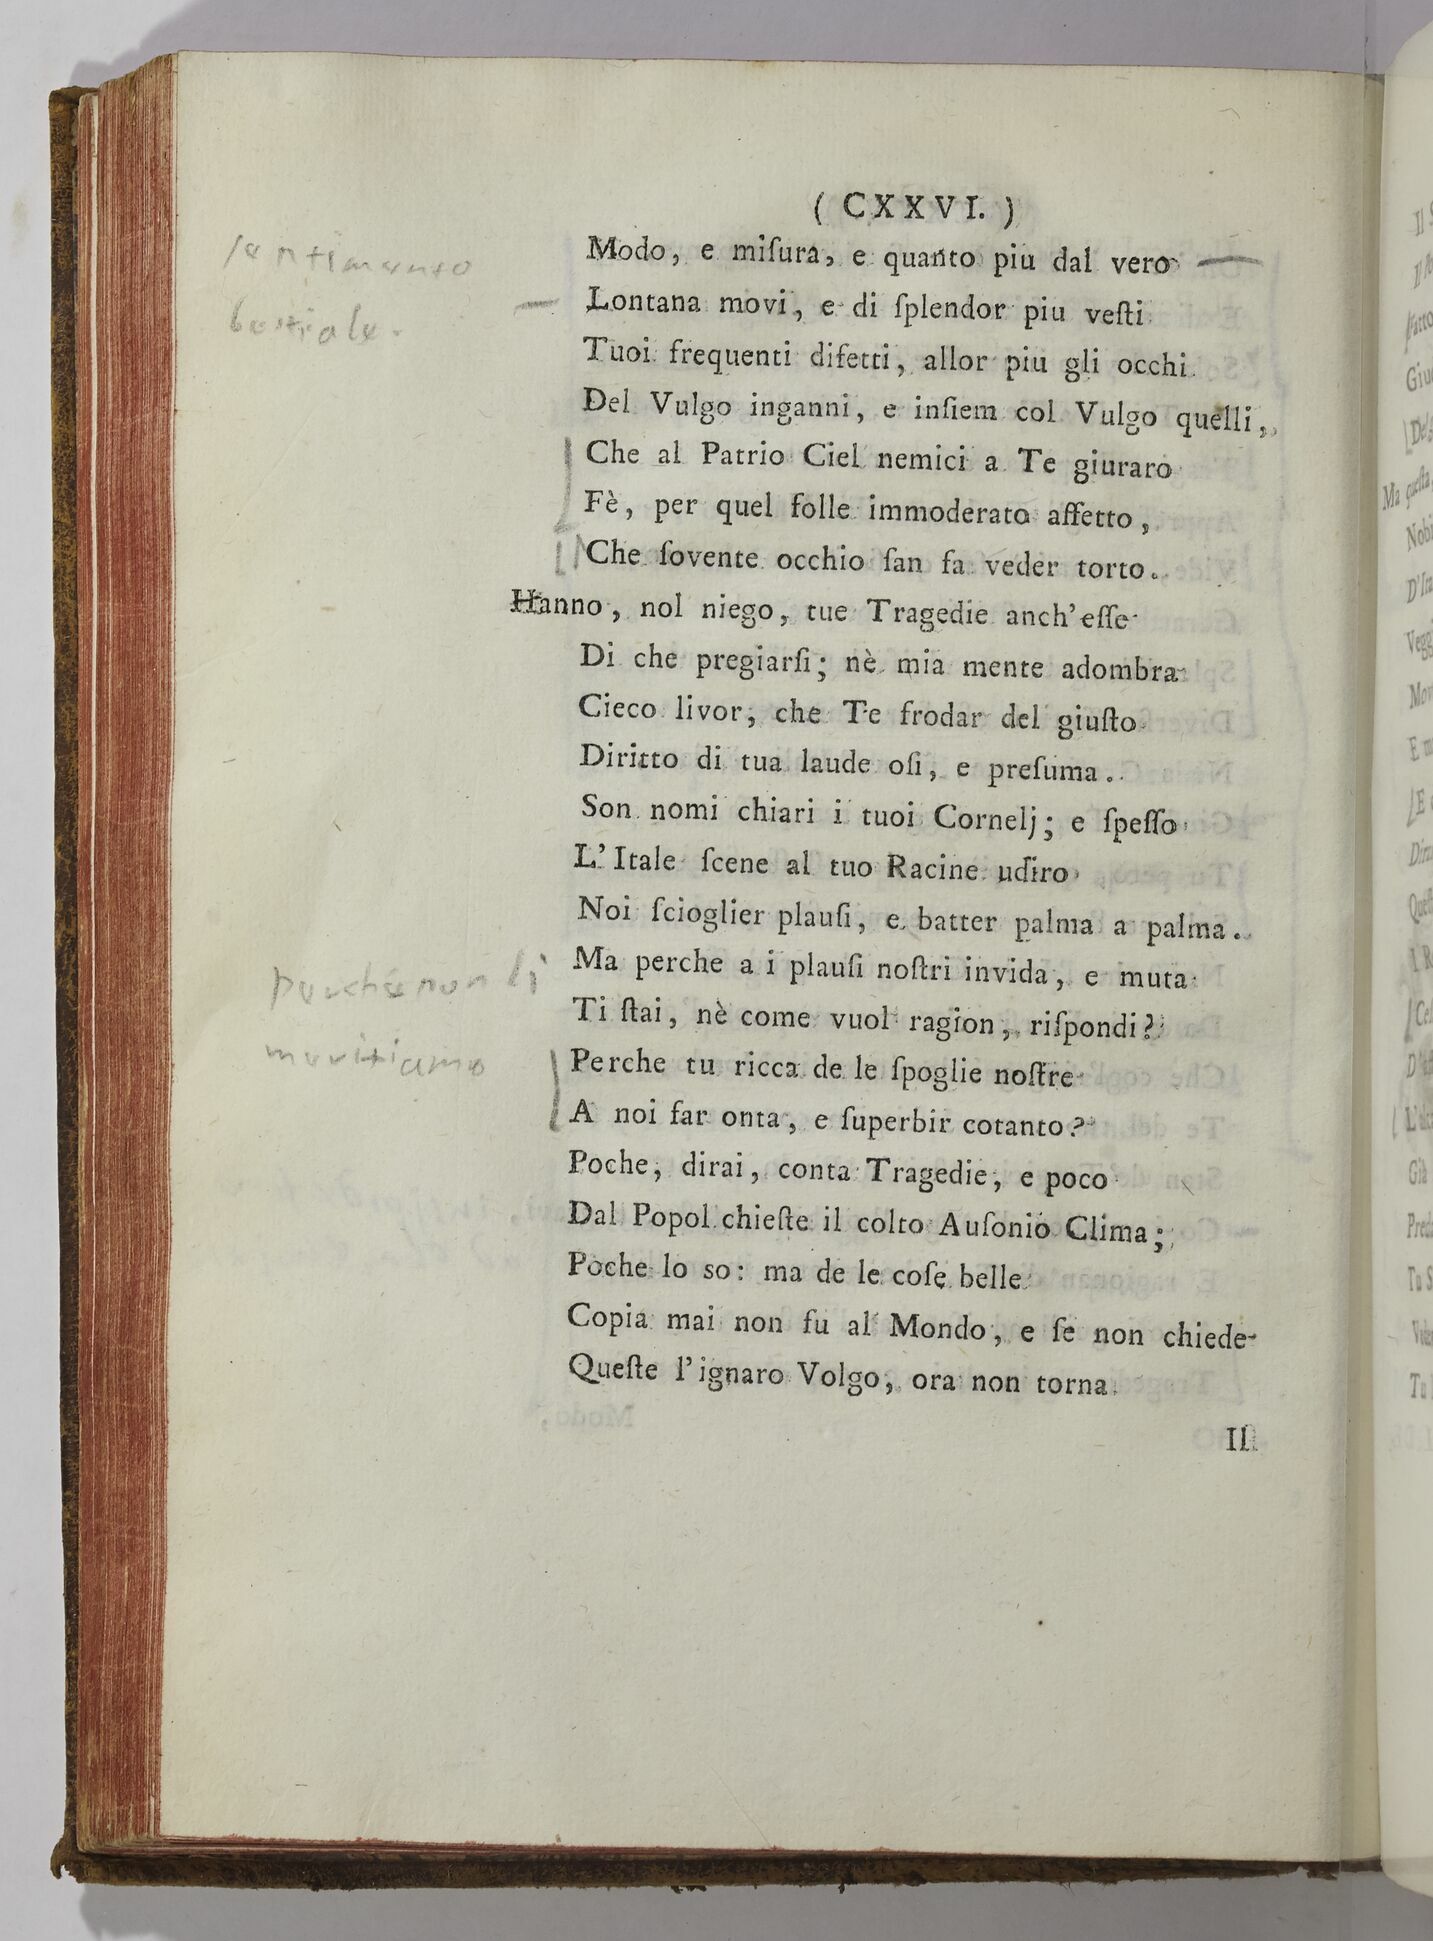 ( CXXVI. )
Modo, e miſura, e quanto piu dal vero
Lontana movi, e di ſplendor piu veſti
Tuoi frequenti difetti, allor piu gli occhi
Del Vulgo inganni, e inſiem col Vulgo quelli,
Che al Patrio Ciel nemici a Te giuraro
Fè, per quel folle immoderato affetto,
Che ſovente occhio ſan fa veder torto.
Hanno, nol niego, tue Tragedie anch'eſſe
Di che pregiarſi; nè mia mente adombra
Cieco livor, che Te frodar del giuſto
Diritto di tua laude oſi, e preſuma.
Son nomi chiari i tuoi Cornelj; e ſpeſſo
L'Itale ſcene al tuo Racine udiro
Noi ſcioglier plauſi, e batter palma a palma.
Ma perche a i plauſi noſtri invida, e muta
Ti ſtai, nè come vuol ragion, riſpondi?
Perche tu ricca de le ſpoglie noſtre
A noi far onta, e ſuperbir cotanto?
Poche, dirai, conta Tragedie, e poco
Dal Popol chieſte il colto Auſonio Clima;
Poche lo so: ma de le coſe belle
Copia mai non fu al Mondo, e ſe non chiede
Queſte l'ignaro Volgo, ora non torna
Il
sentimento
bestiale.
perche non li
meritiamo